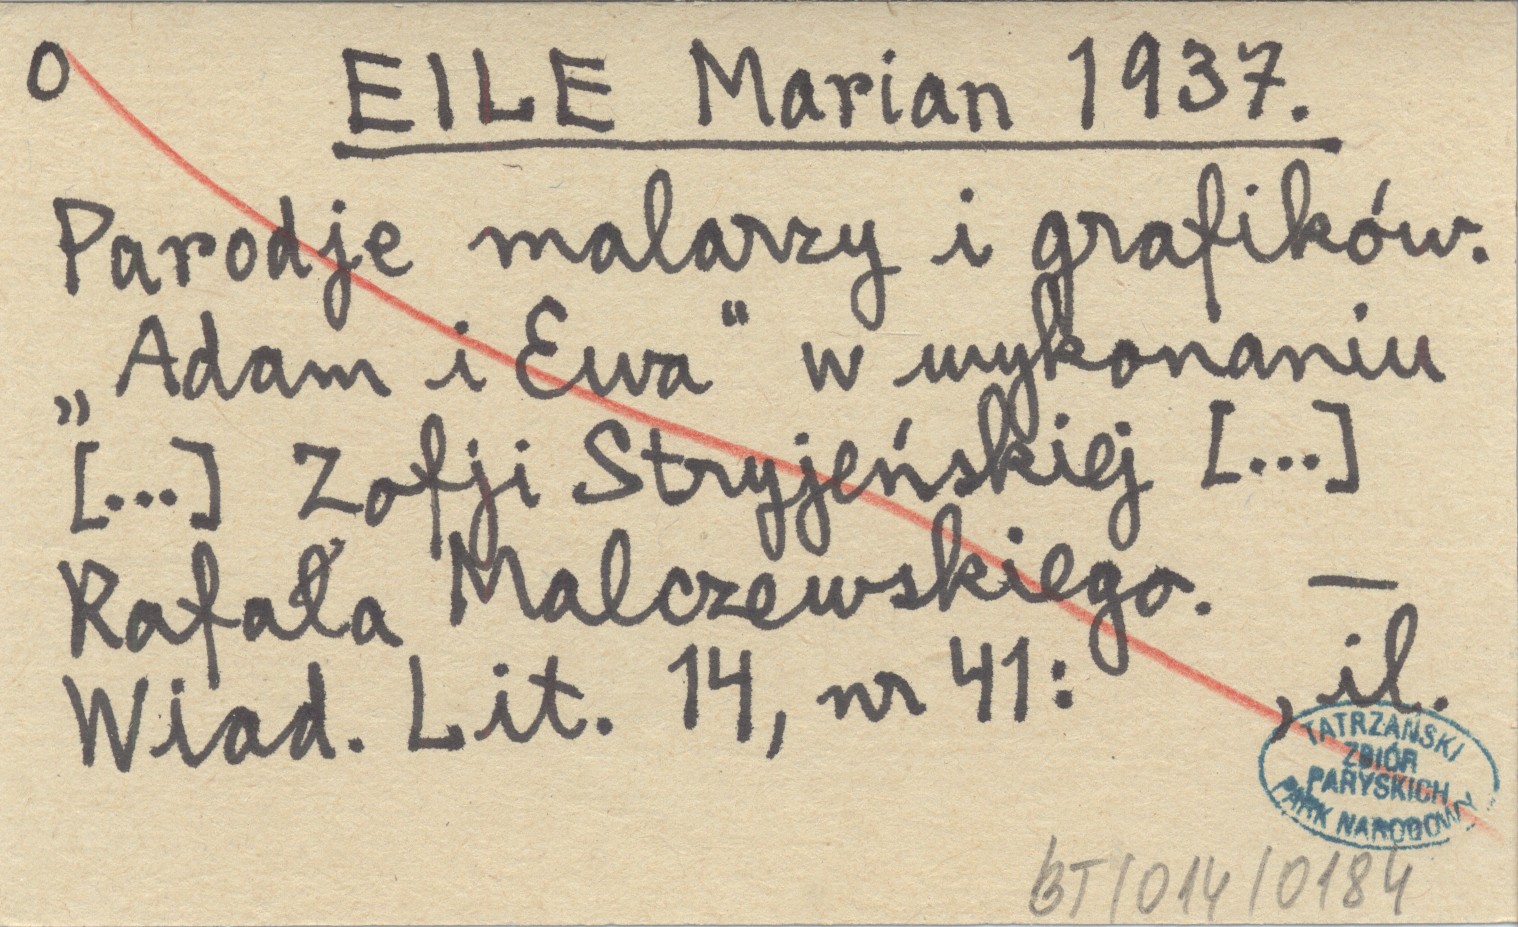 O EILE Marian 1937.
Parodje malarzy i grafików.
„Adam i Ewa" w wykonaniu
[...] Zofji Stryjeńskiej [...]
Rafała Malczewskiego. —
Wiad. Lit. 14, nr 41: , il.
TATRZAŃSKI
ZBIÓR
PARYSKICH
PARK NARODOWY
BT/014/0184